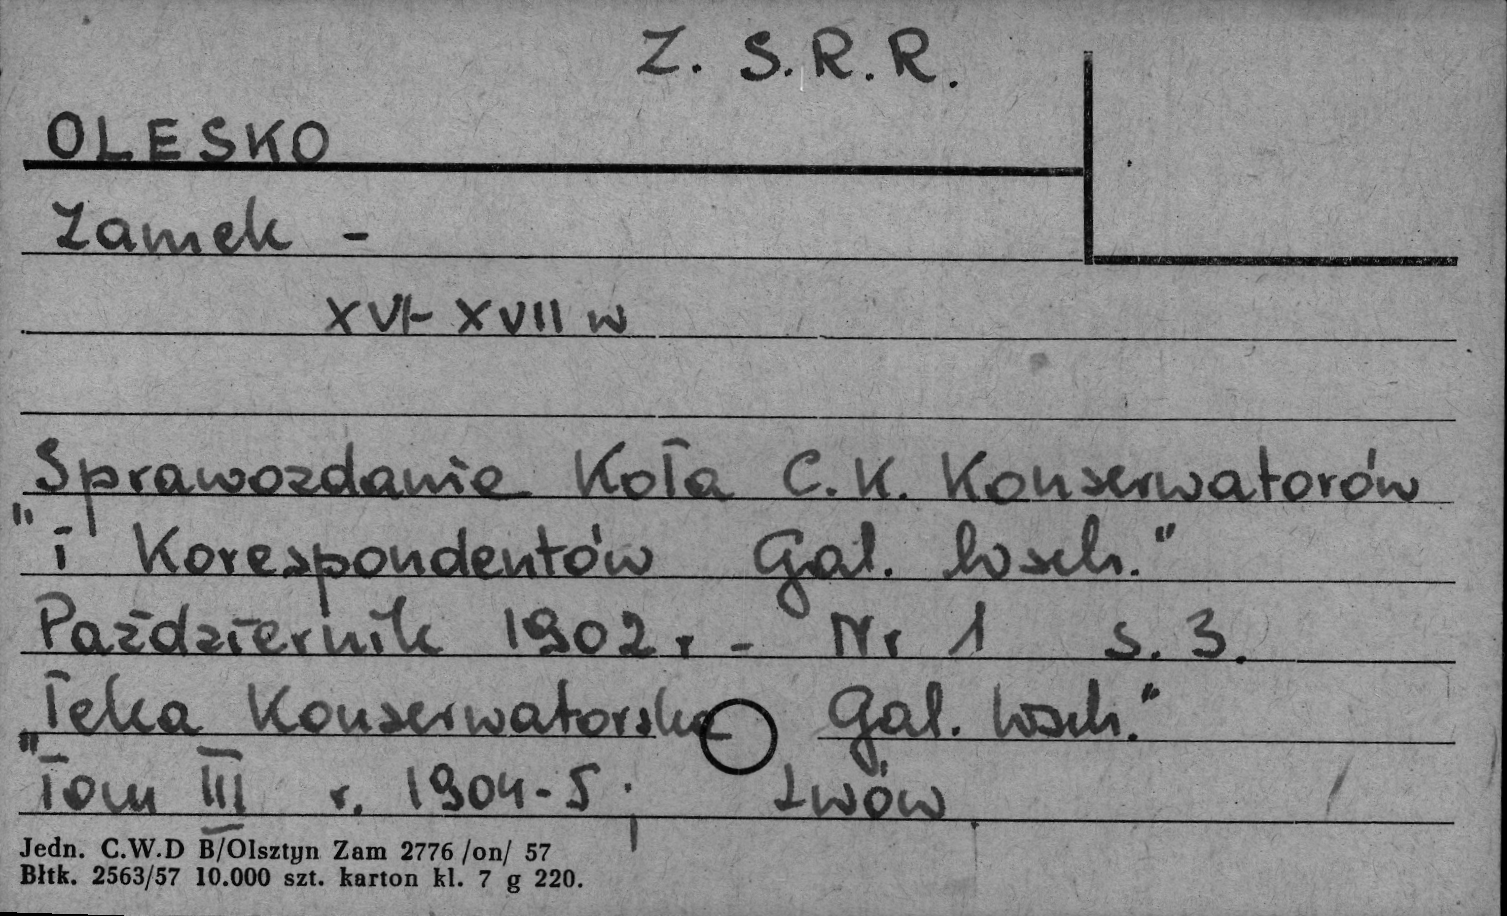 Z. S.R.R.
OLESKO
Zamek -
XVI-XVII w
"Sprawozdanie Koła C.K. Konserwatorów
i Korespondentów Gal. Wsch."
Październik 1902 r - Nr 1 s. 3.
"Teka Konserwatorska Gal. Wsch."
Tom III r. 1904-5; Lwów
Jedn. C.W.D B/Olsztyn Zam 2776 /on/ 57
Błtk. 2563/57 10.000 szt. karton kl. 7 g 220.